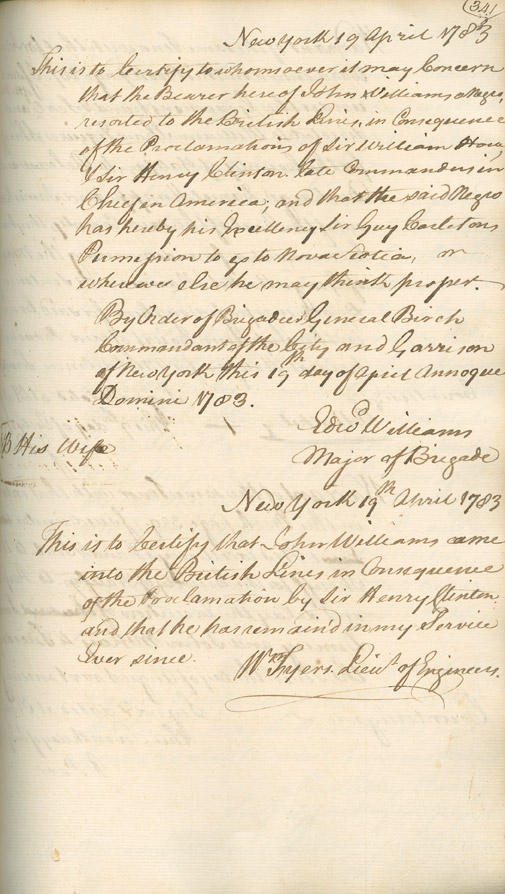 (34)
New York 19 April 1783
This is to Certify to whomsoever it may Concern
that the Bearer hereof John Williams a Negro,
resorted to the British Lines, in Consequence
of the Proclamations of Sir William Howe,
& Sir Henry Clinton late Commanders in
Chief in America, and that the said Negro
has hereby his Excellency Sir Guy Carletons
Permission to go to Nova Scotia, or
wherever else he may think proper.
By Order of Brigadier General Birch
Commandant of the City and Garrison
of New York this 19th day of April Annoque
Domini 1783.
Edwd Williams
Major of Brigade
His Wife
New York 19th April 1783
This is to Certify that John Williams came
into the British Lines in Consequence
of the Proclamation by Sir Henry Clinton
and that he has remain'd in my Service
Ever since.
Wm Fyers Lieut of Engineers.